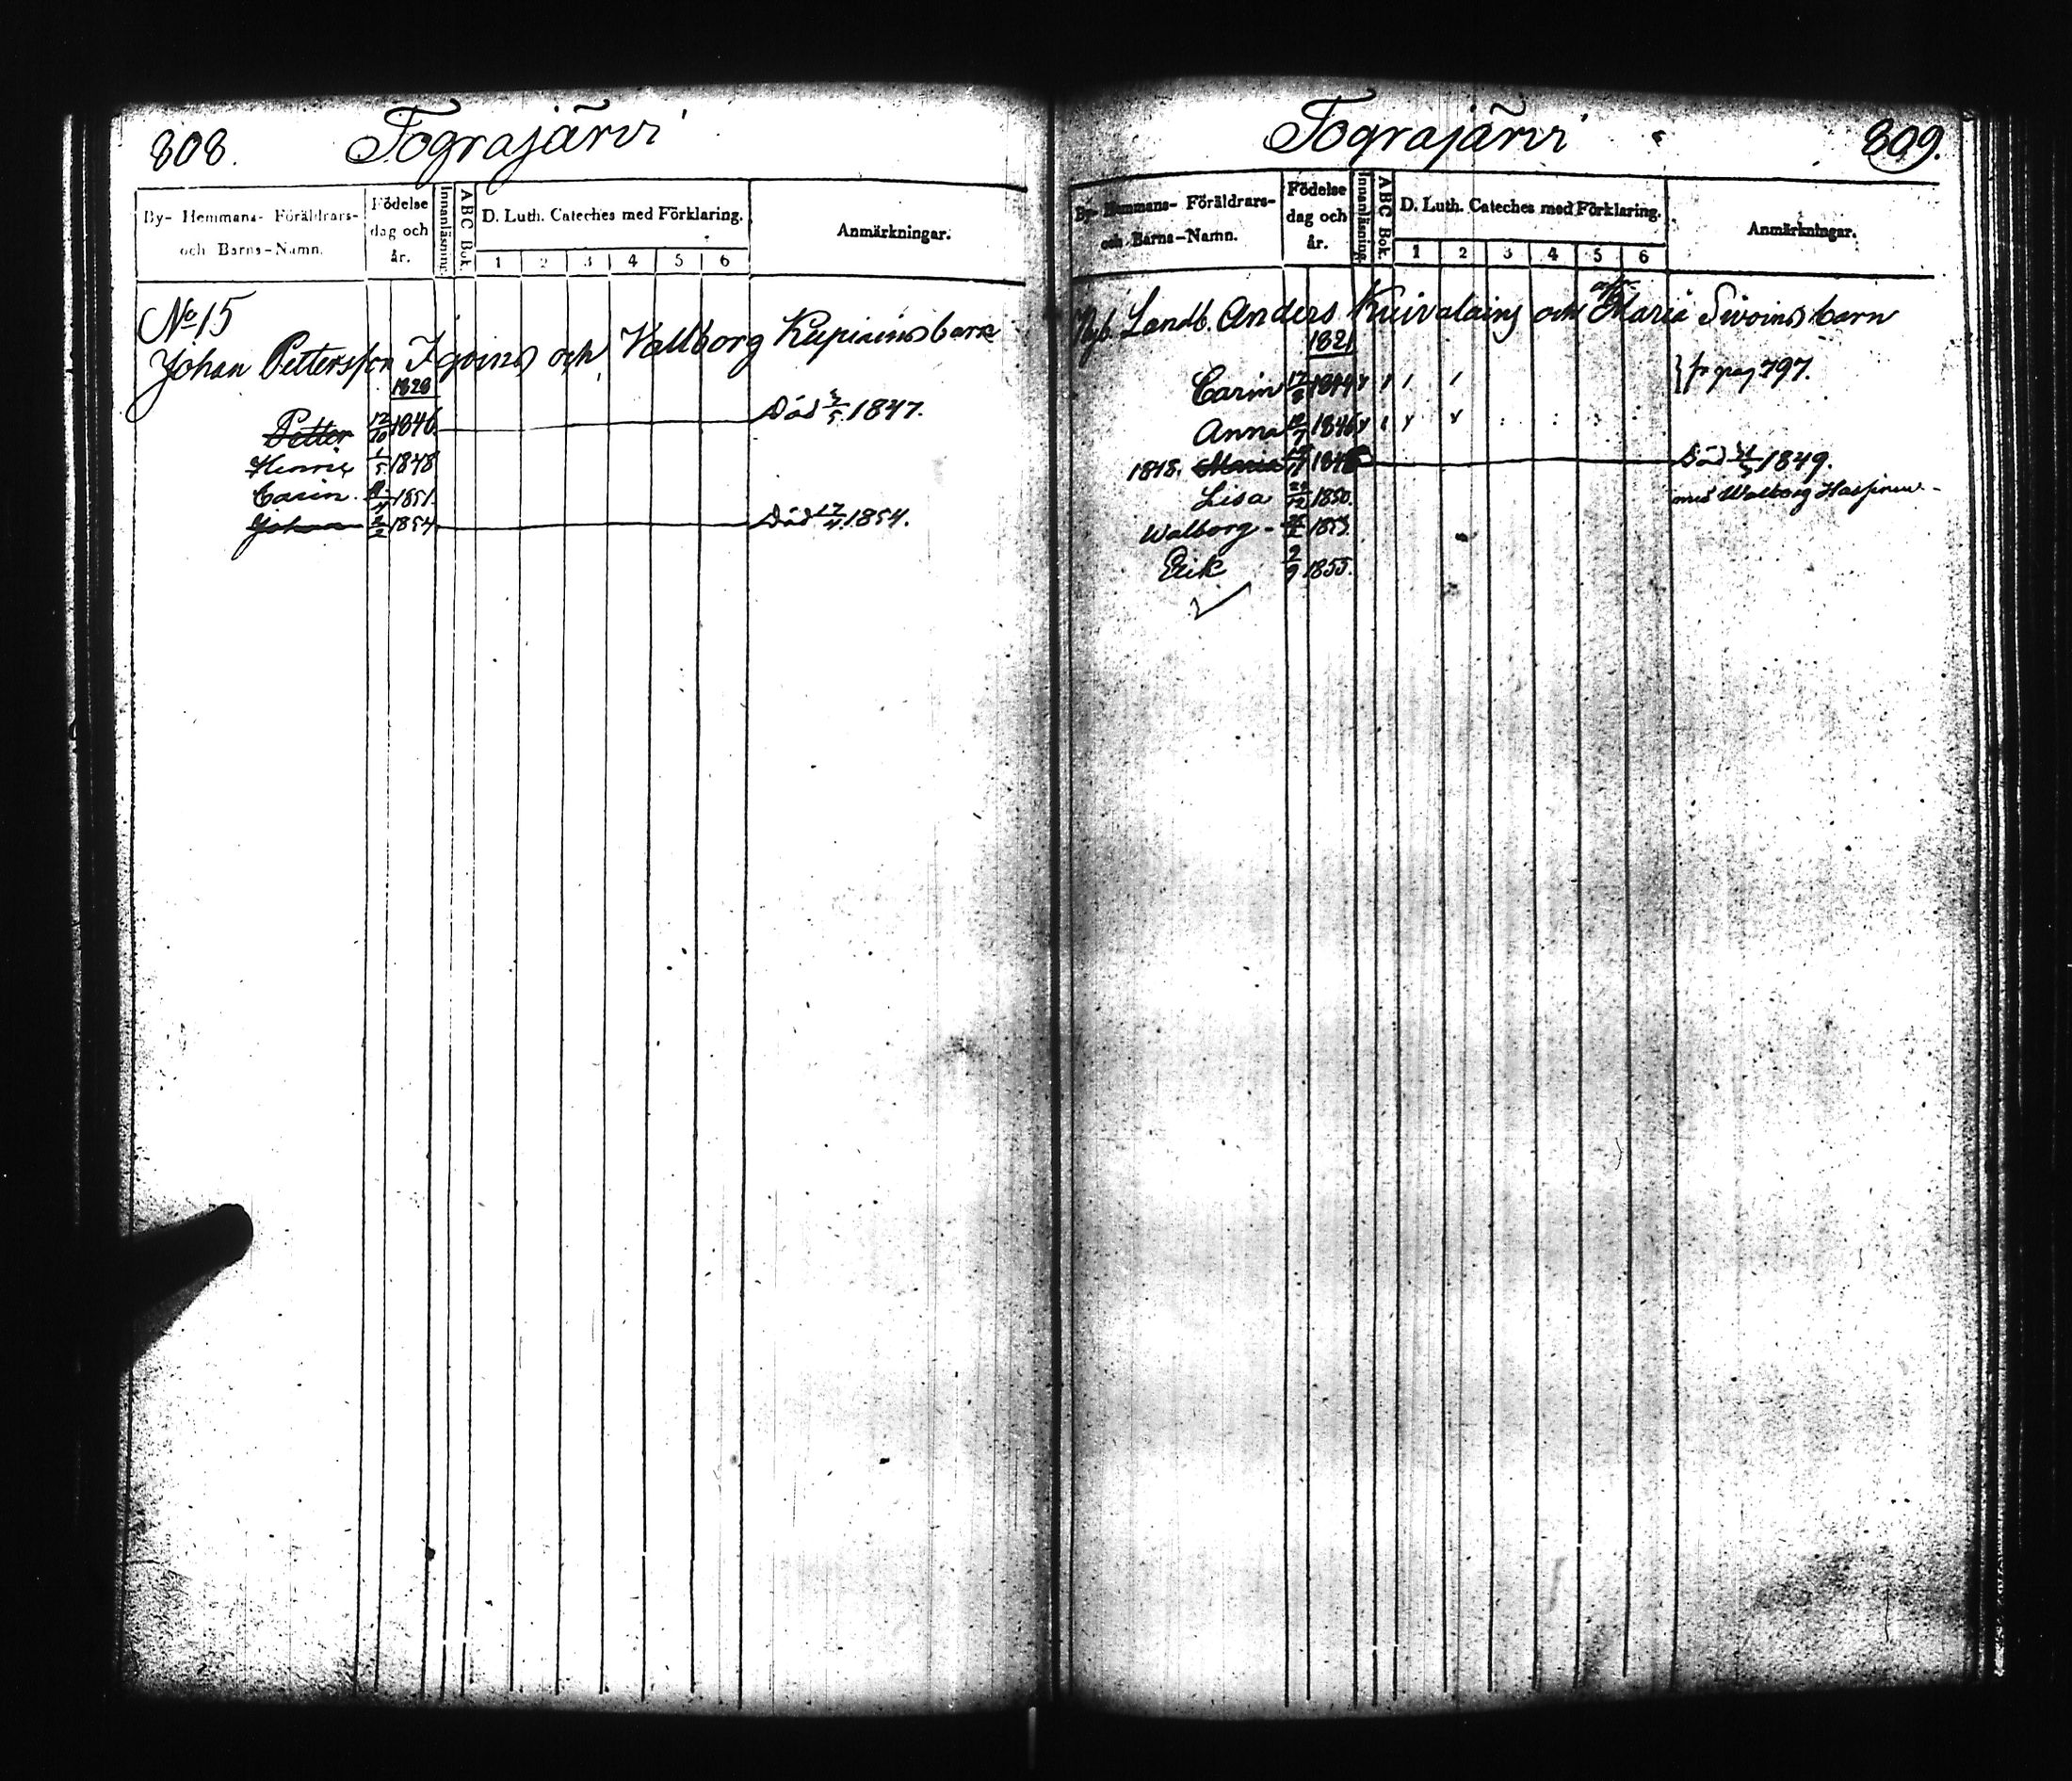 808. Tograjärvi
By- Hemmans- Föräldrars- och Barns-Namn.
Födelse dag och år.
Innanläsning.
ABC Bok.
D. Luth. Cateches med Förklaring.
1 2 3 4 5 6
Anmärkningar.
No 15
Johan Pettersson Igoins och Vallborg Kupiains barn
1828
Petter 12/10 1846 Död 3/5 1847.
Henric 1/5 1848
Carin. 8/4 1851.
Johan 2/2 1854 Död 17/4 1854.
Tograjärvi 809.
By- Hemmans- Föräldrars- och Barns-Namn.
Födelse dag och år.
Innanläsning.
ABC Bok.
D. Luth. Cateches med Förklaring.
1 2 3 4 5 6
Anmärkningar.
Nyb. Landb. Anders Kuivalains och Maria Sivoins barn
1821
Carin 1844 fr pag 797.
Anna 1846
1848. Maria 1848 Död 1849.
Lisa 1850. med Walborg
Walborg - 1853.
Erik 2/9 1855.